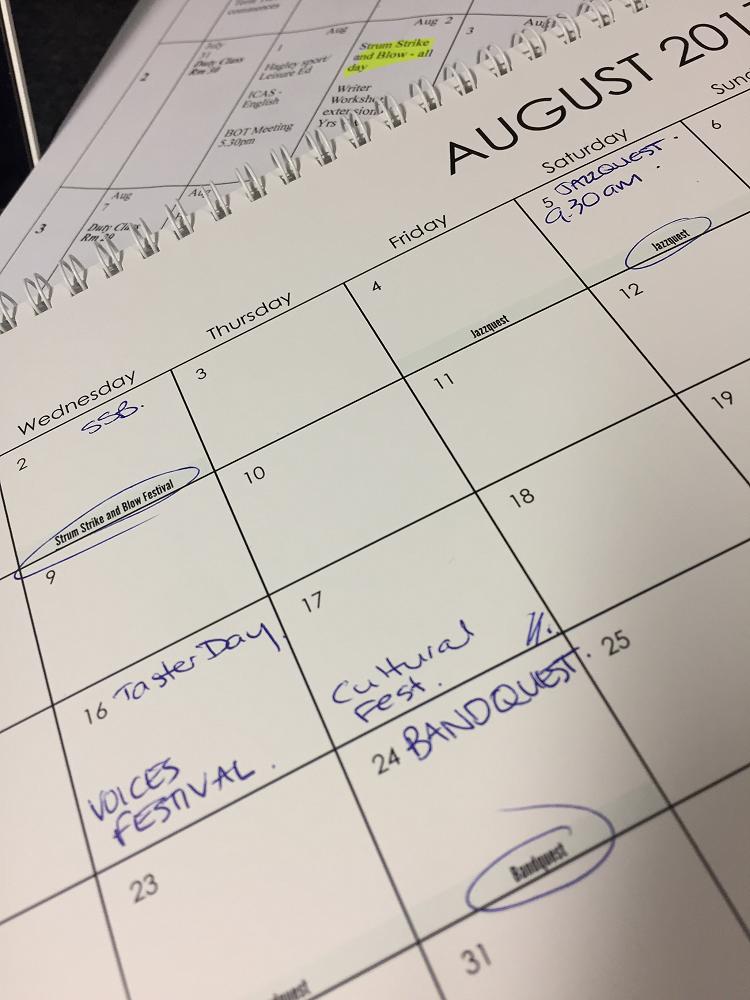 Aug
Aug 2
3
July
31
Duty Class
Rm 30
1
Hagley sport/
Leisure Ed
ICAS -
English
BOT Meeting
5.30pm
Strum Strike
and Blow - all
day
Writer
extension
Yrs
2
Aug
7
Duty
Rm 29
3
AUGUST 201
Wednesday
Thursday
Friday
Saturday
2
SSB.
Strum Strike and Blow Festival
3
4
Jazzquest
5 JAZZQUEST.
9.30am.
Jazzquest
6
9
10
11
12
16 Taster Day.
VOICES
FESTIVAL.
17
Cultural
Fest.
18
19
23
24 BANDQUEST.
Bandquest
25
31